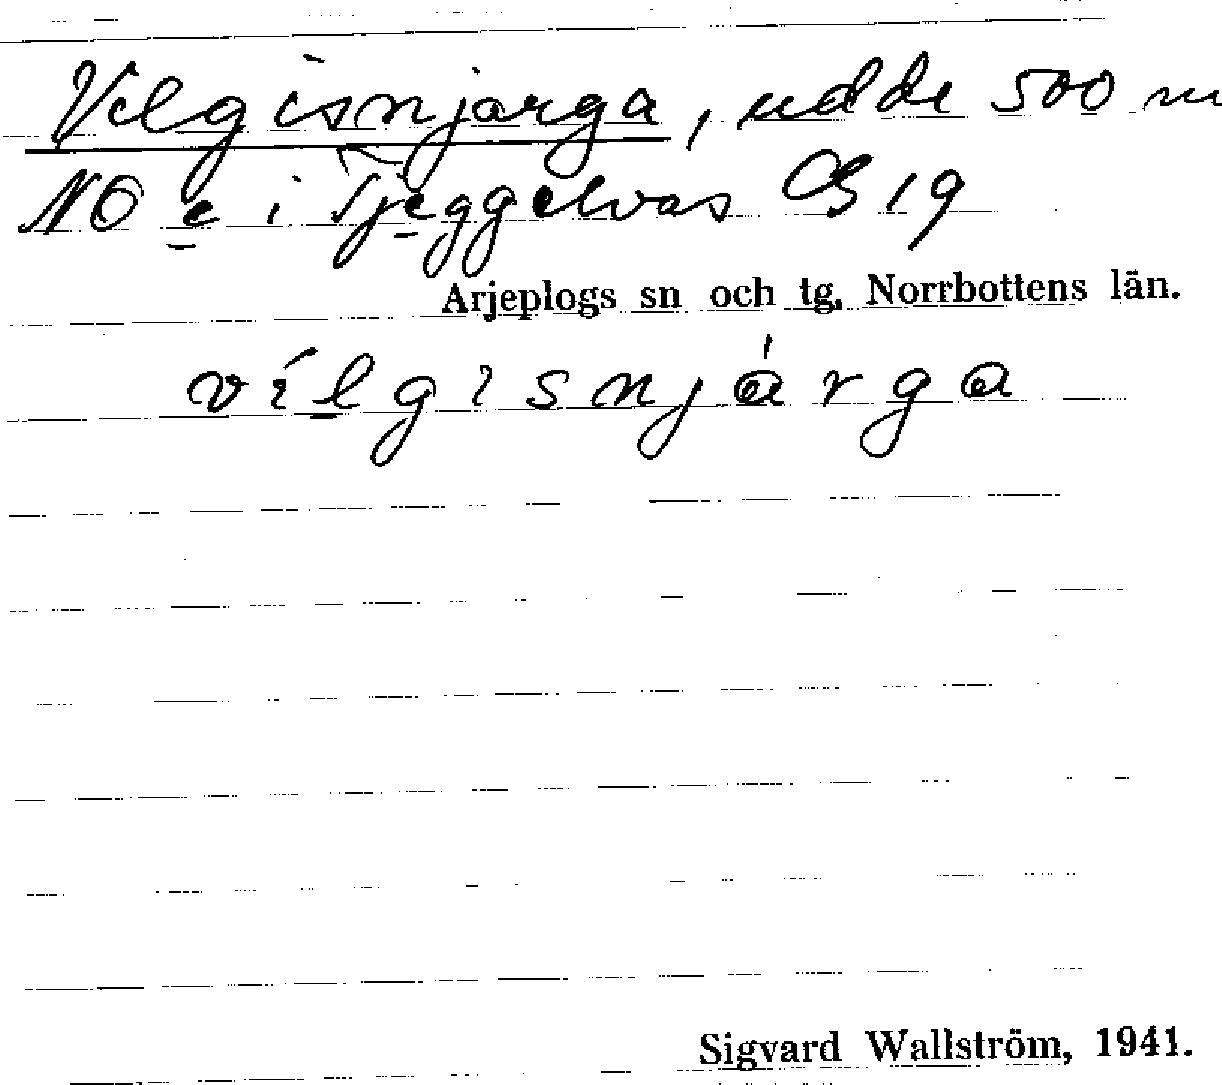 Vilgisnjarga, udde 500 m
NO e i Tjeggelvas CS 19
Arjeplogs sn och tg, Norrbottens län.
vílgisnjárga
Sigvard Wallström, 1941.